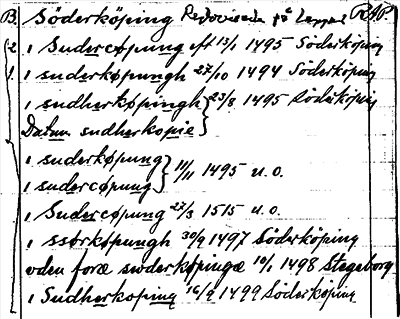 B. Söderköping Redovisade på lappar RAP
2. i Sudercøpung eft 13/1 1495 Söderköping
1. i suderkøpungh 27/10 1494 Söderköping
i sudherkøpingh } 23/8 1495 Söderköping
Datum sudherkopie
i suderkøpung } 11/11 1495 u.o.
i sudercøpung
i Sudercøpung 27/3 1515 u.o.
i ssørkøpungh 30/9 1497 Söderköping
vden foræ swderkøpingæ 10/1 1498 Stegeborg
i Sudherkoping 16/9 1499 Söderköping